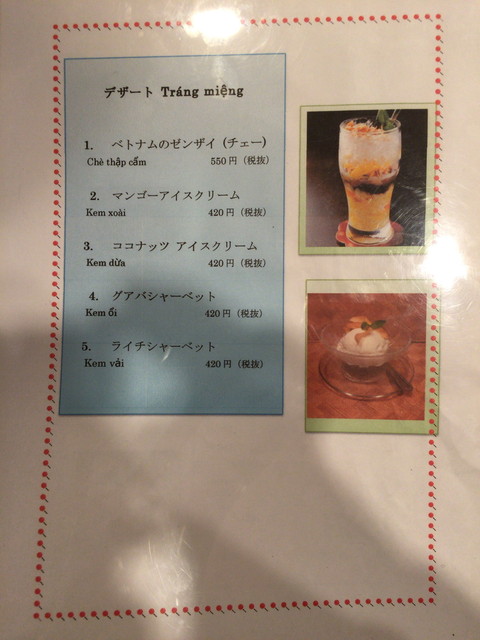 デザート Tráng miệng
1. ベトナムのゼンザイ (チェー)
Chè thập cẩm 550円 (税抜)
2. マンゴーアイスクリーム
Kem xoài 420円 (税抜)
3. ココナッツ アイスクリーム
Kem dừa 420円 (税抜)
4. グアバシャーベット
Kem ổi 420円 (税抜)
5. ライチシャーベット
Kem vải 420円 (税抜)